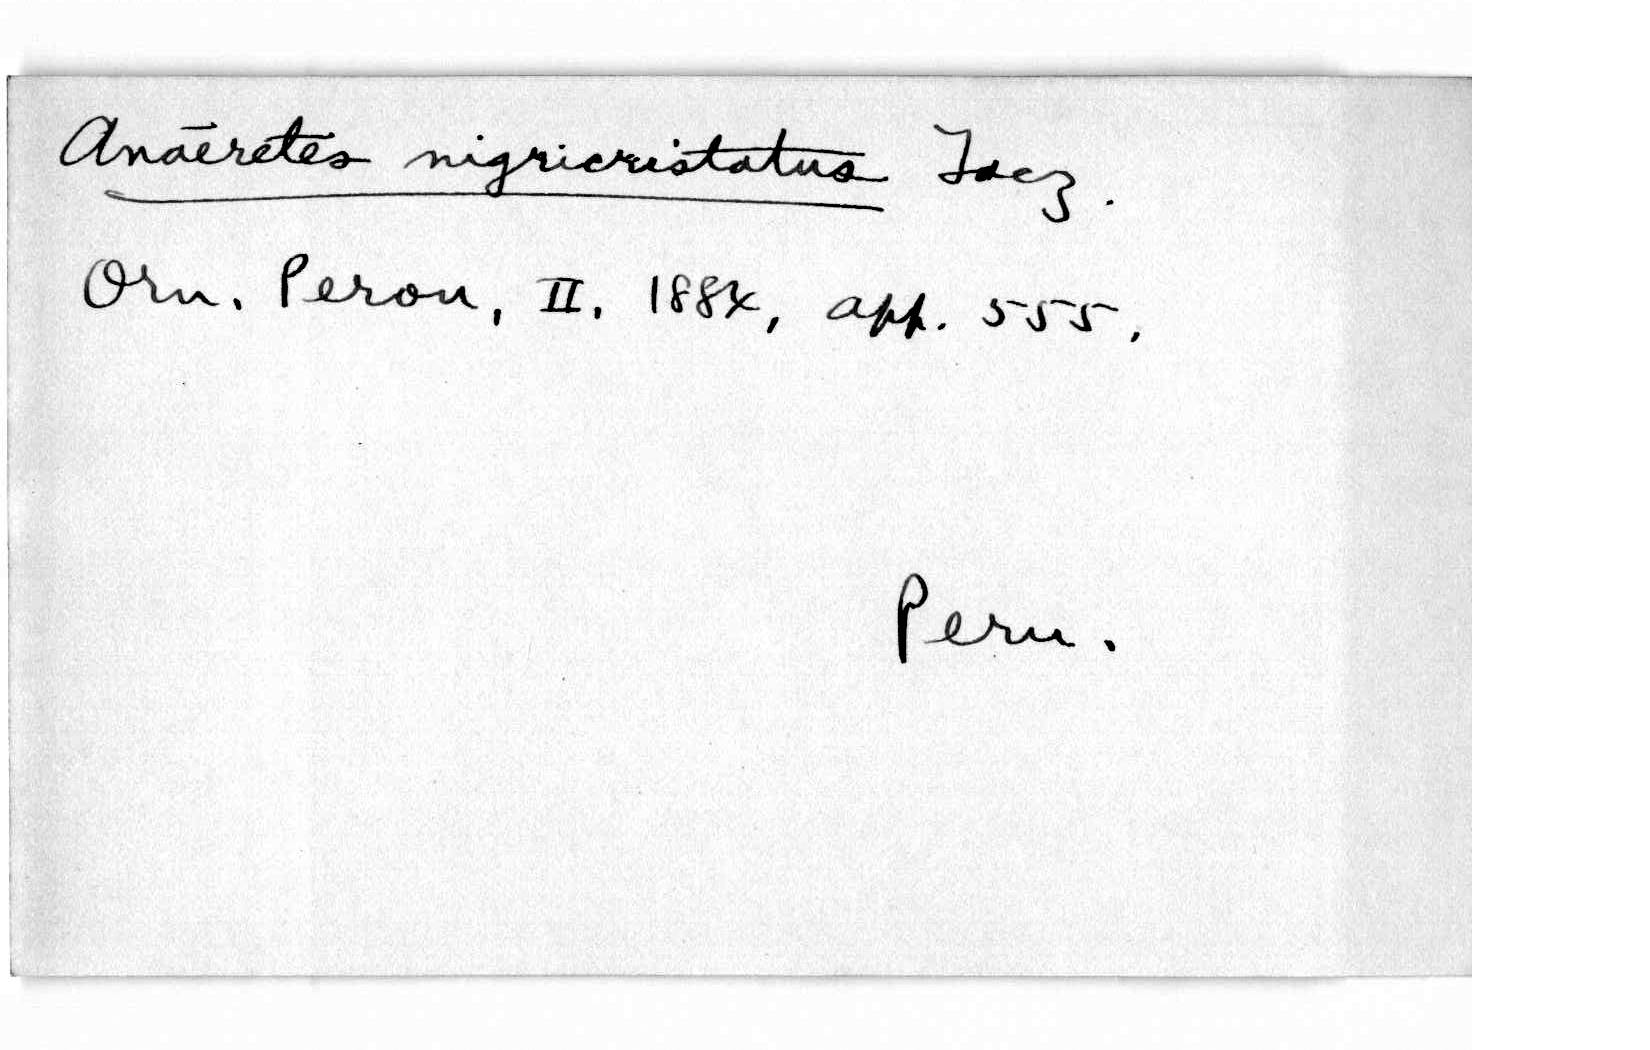 Anaëretes nigricristatus Tacz.
Orn. Perou, II. 1884, app. 555,
Peru.